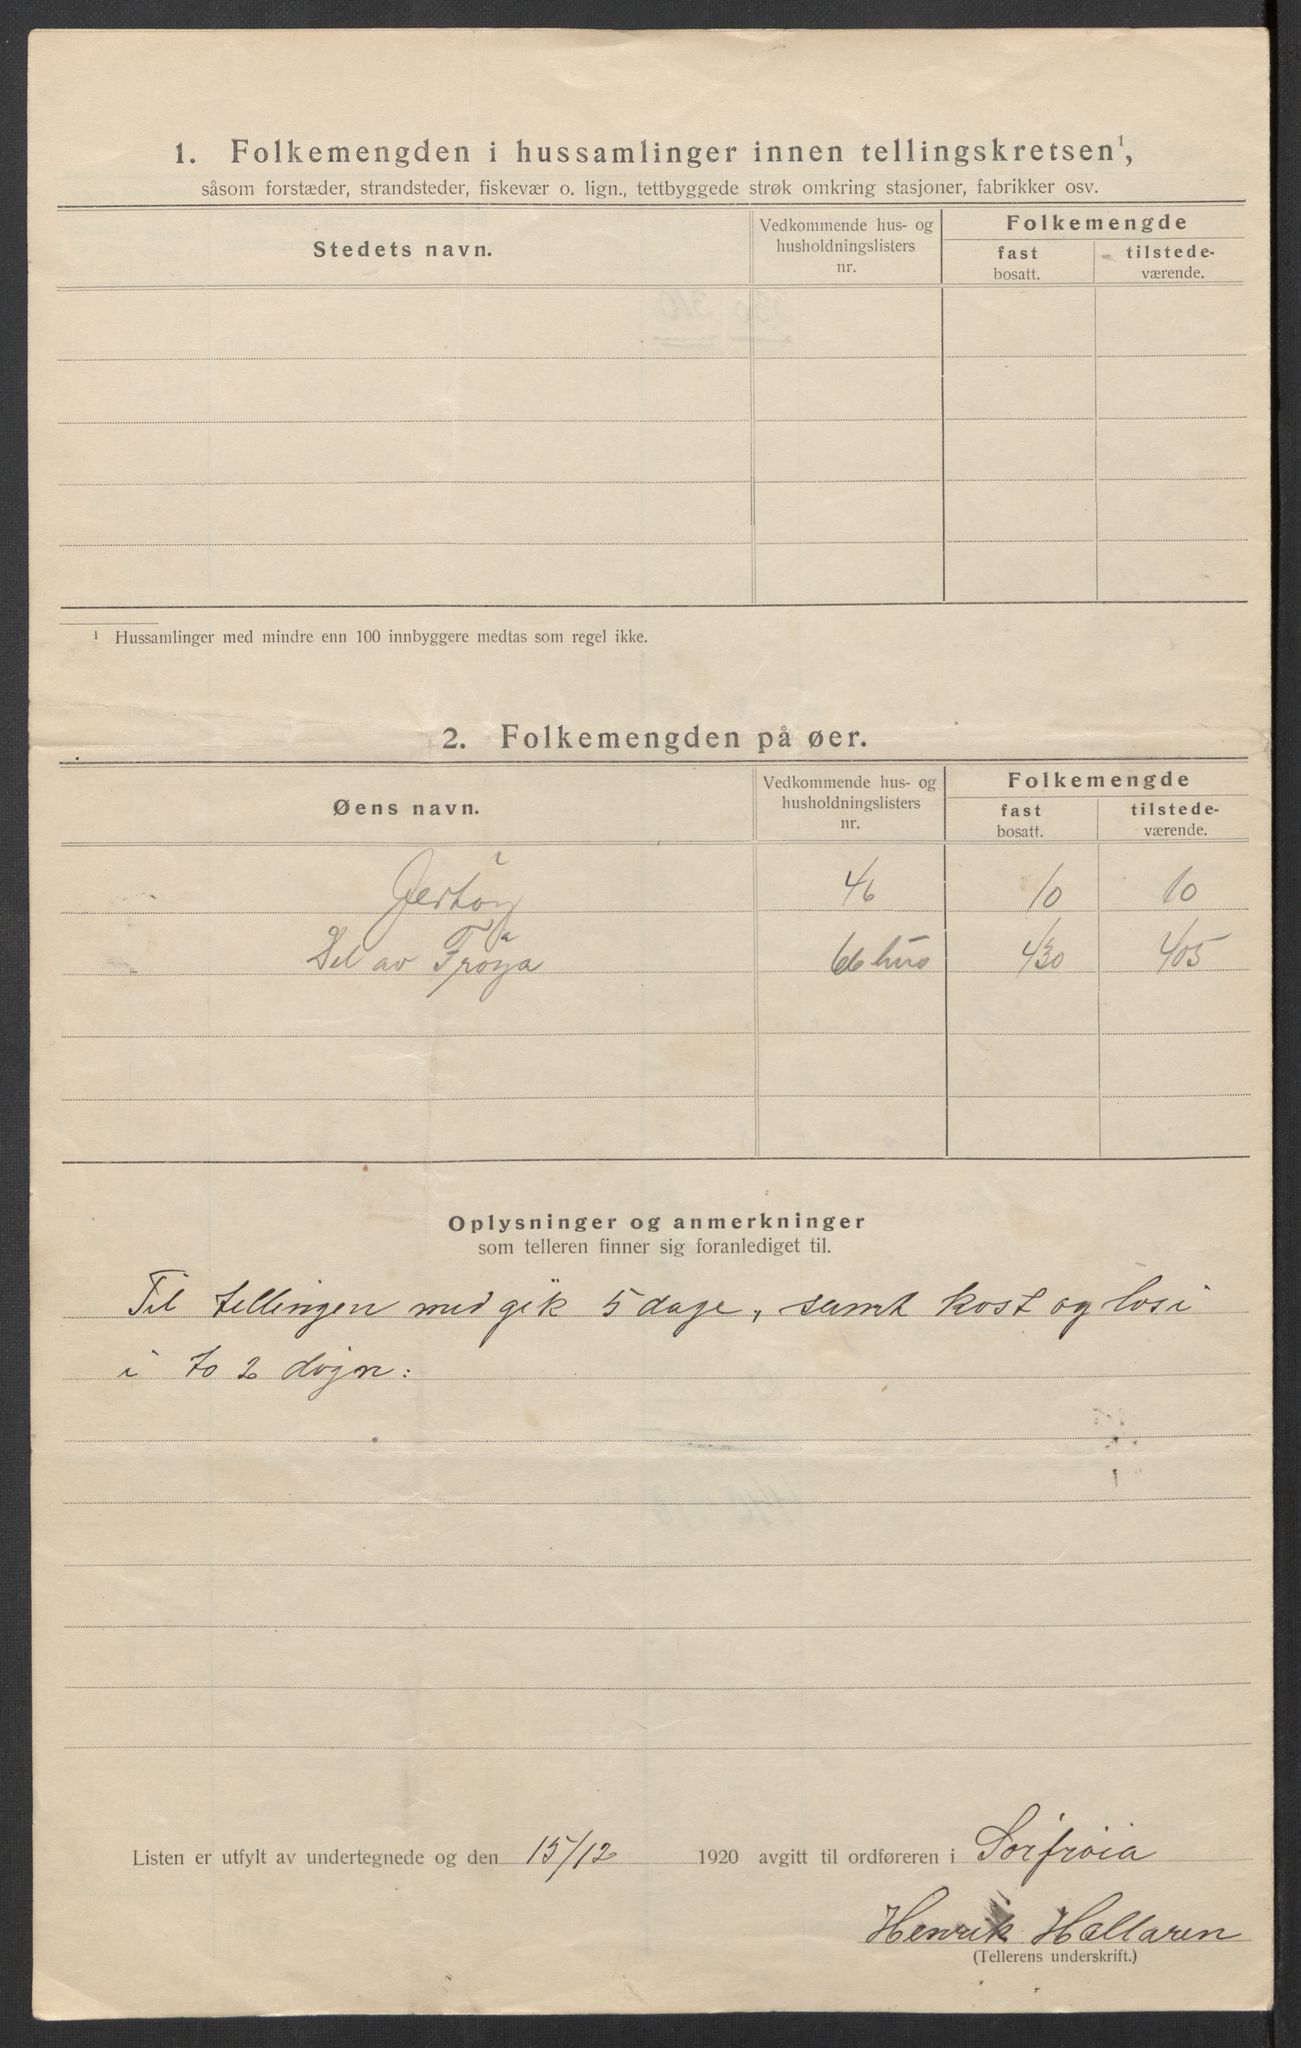 1. Folkemengden i hussamlinger innen tellingskretsen¹,
såsom forstæder, strandsteder, fiskevær o. lign., tettbyggede strøk omkring stasjoner, fabrikker osv.
Stedets navn.
Vedkommende hus- og
husholdningslisters
nr.
Folkemengde
fast
bosatt.
tilstede-
værende.
¹ Hussamlinger med mindre enn 100 innbyggere medtas som regel ikke.
2. Folkemengden på øer.
Øens navn.
Vedkommende hus- og
husholdningslisters
nr.
Folkemengde
fast
bosatt.
tilstede-
værende.
46 10 10
Del av Frøya 66 hus 430 405
Oplysninger og anmerkninger
som telleren finner sig foranlediget til.
Til tellingen med gik 5 dage, samt kost og losi
i to 2 døgn:
Listen er utfylt av undertegnede og den 15/12 1920 avgitt til ordføreren i Sørfrøia
Henrik Hallaren
(Tellerens underskrift.)